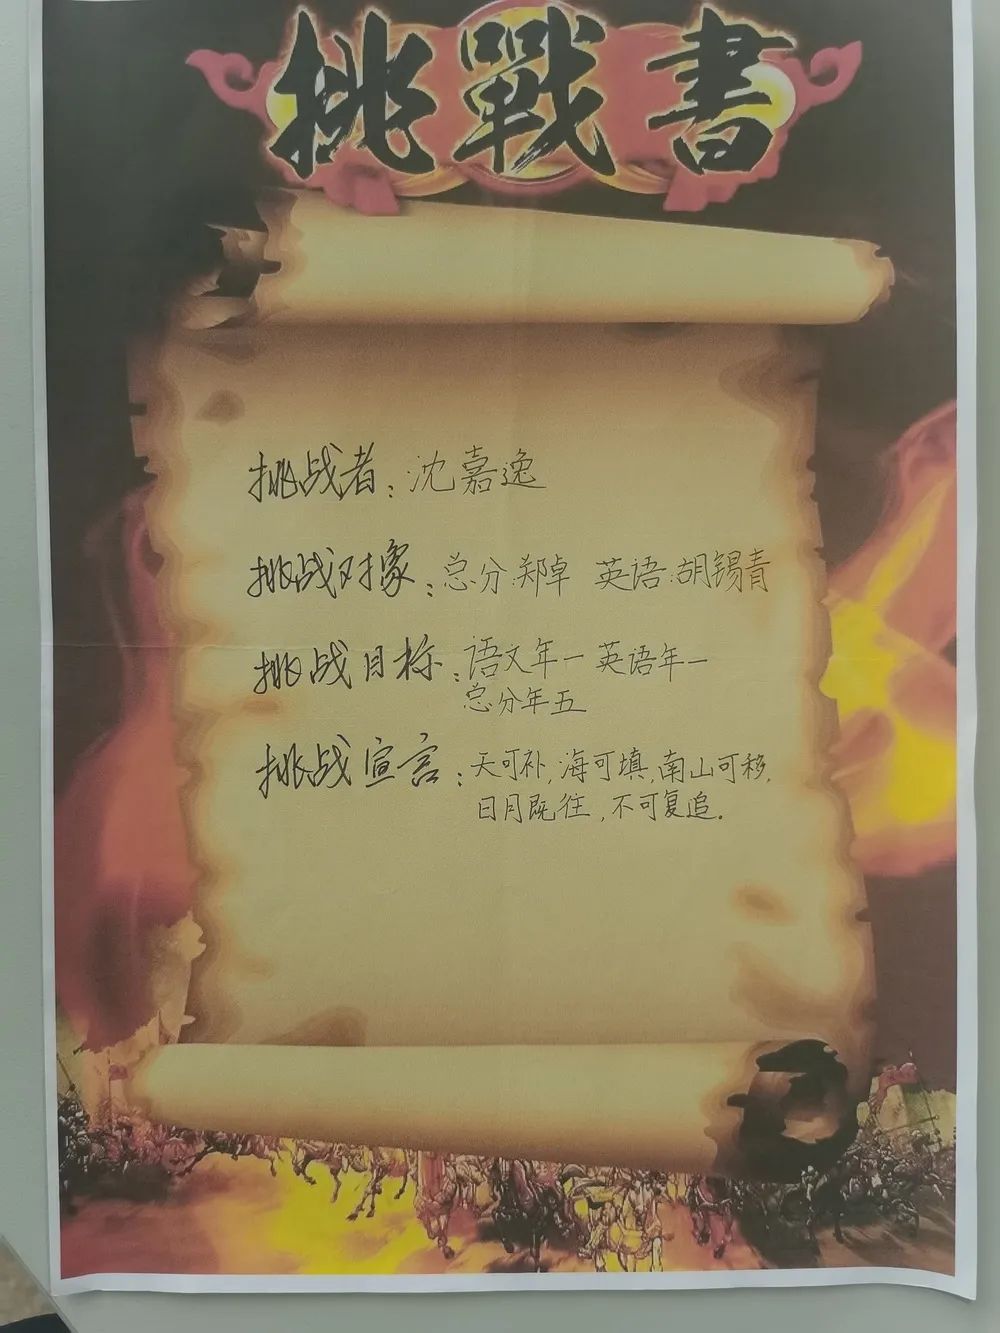 挑戰書
挑战者：沈嘉逸
挑战对象：总分：郑卓 英语：胡锡青
挑战目标：语文年一 英语年一
总分年五
挑战宣言：天可补，海可填，南山可移，
日月既往，不可复追。